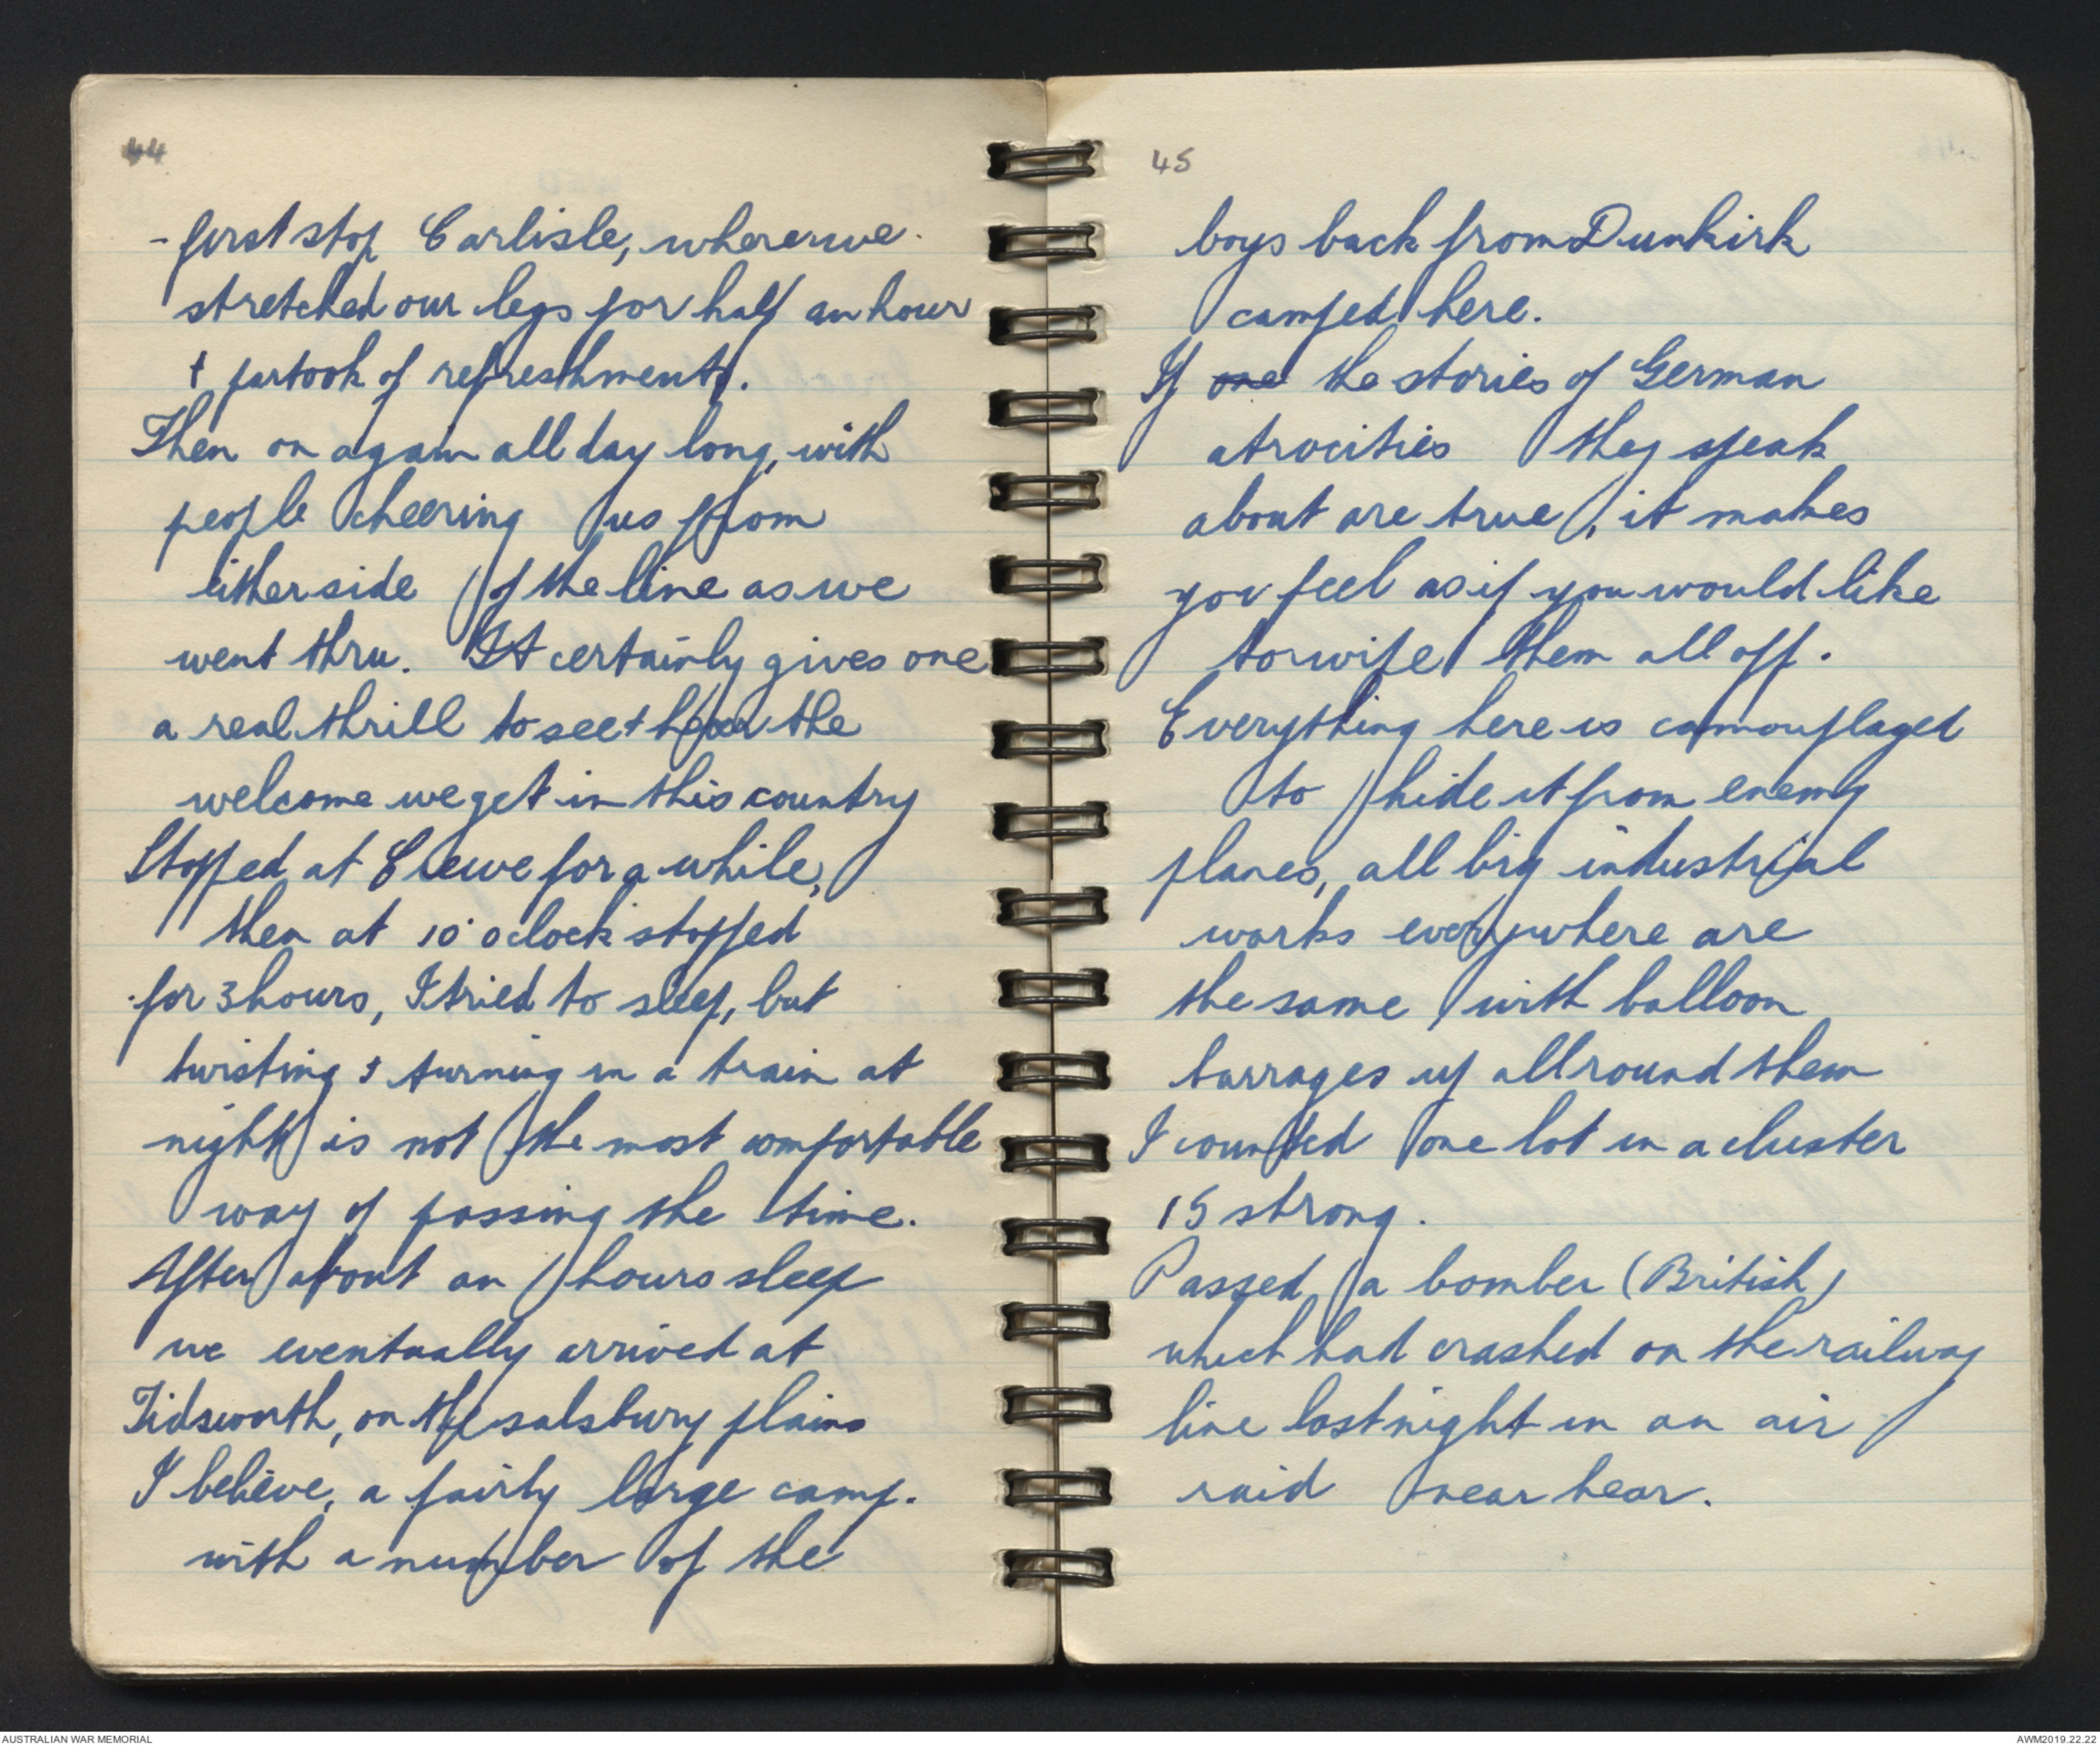 44
- first stop Carlisle, where we
stretched our legs for half an hour
+ partook of refreshments.
Then on again all day long, with
people cheering us from
either side of the line as we
went thru. It certainly gives one
a real thrill to see + hear the
welcome we get in this country
Stopped at Crewe for a while,
then at 10 oclock stopped
for 3 hours, I tried to sleep, but
twisting & turning in a train at
night is not the most comfortable
way of passing the time.
After about an hours sleep
we eventually arrived at
Tidsworth, on the salsbury plains
I believe, a fairly large camp.
with a number of the
45
boys back from Dunkirk
camped here.
If one the stories of German
atrocities they speak
about are true, it makes
you feel as if you would like
to wipe them all off.
Everything here is camouflaged
to hide it from enemy
planes, all big industrial
works everywhere are
the same with balloon
barrages up all round them
I counted one lot in a cluster
15 strong.
Passed a bomber (British)
which had crashed on the railway
line last night in an air
raid near hear.
AUSTRALIAN WAR MEMORIAL
AWM2019.22.22